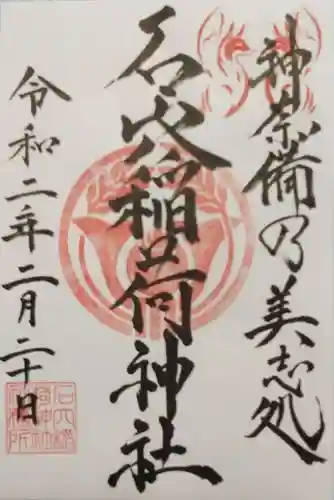 神奈備乃美志処
石穴稲荷神社
令和二年二月二十日
石穴稲荷神社社務所